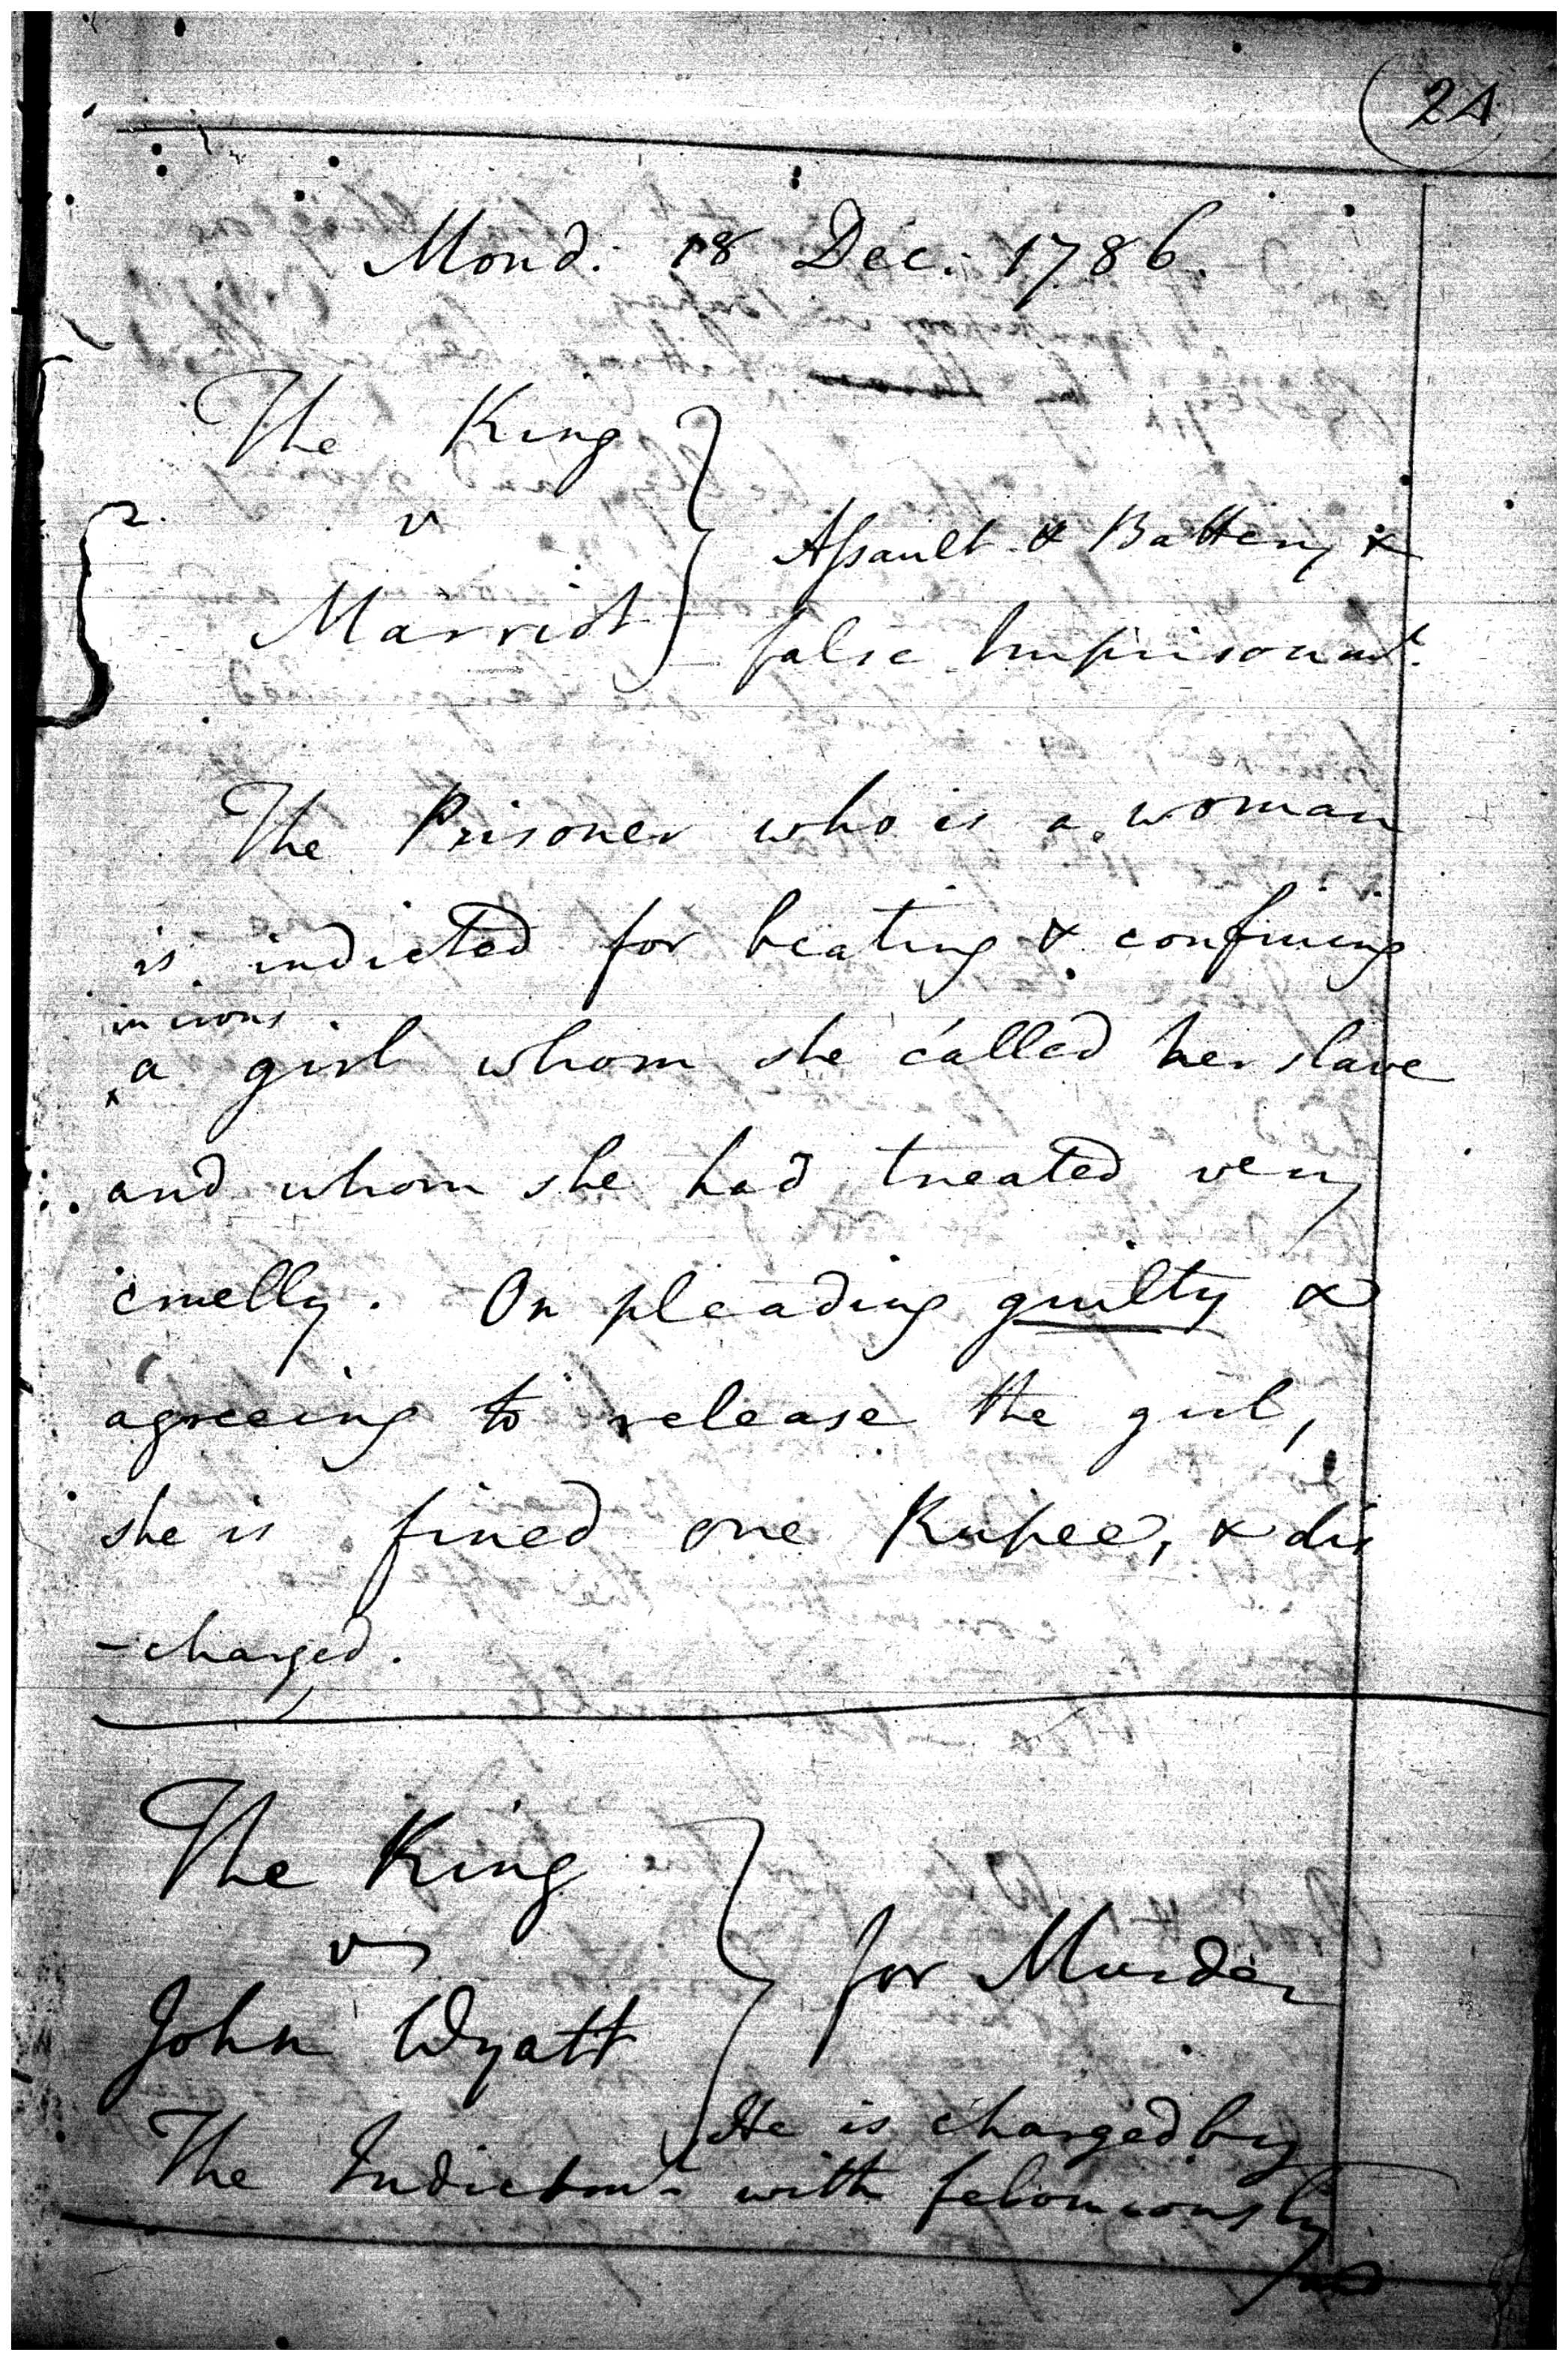 24
Mond. 18 Dec. 1786.
The King
v
Marriot
Assault & Battery &
false Imprisonmt.
The Prisoner who is a woman
is indicted for beating & confining
in irons
a girl whom she called her slave
and whom she had treated very
cruelly. On pleading guilty &
agreeing to release the girl,
she is fined one Rupee, & dis
-charged.
The King
vs
John Wyatt
for Murder
He is charged by
The Indictmt with feloniously
and